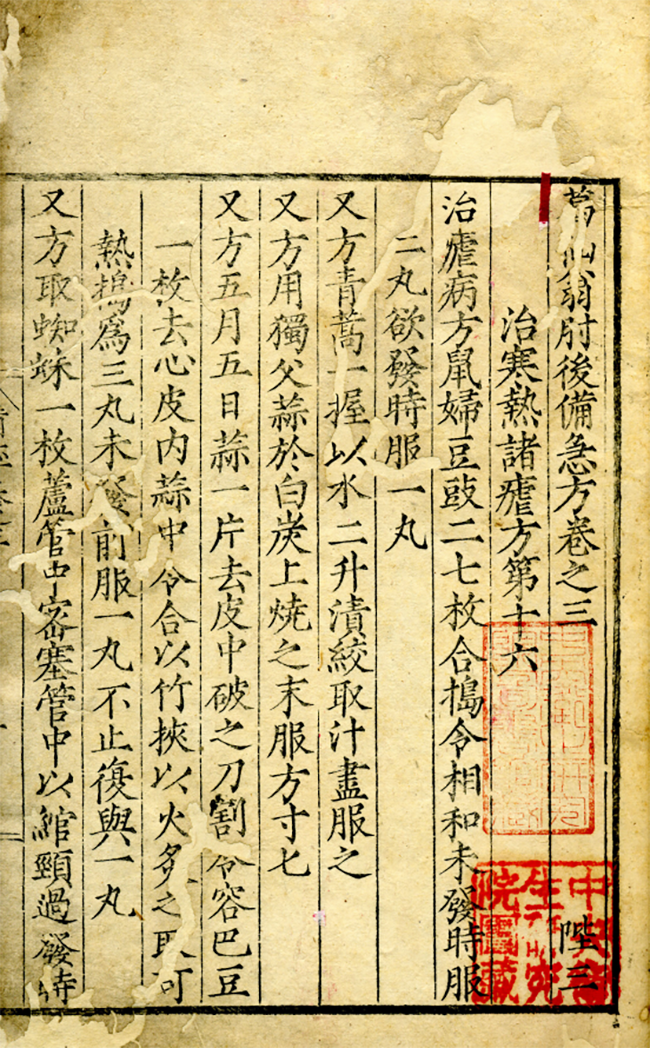 葛仙翁肘後備急方卷之三 陛三
治寒熱諸瘧方第十六
治瘧病方鼠婦豆豉二七枚合搗令相和未發時服
二丸欲發時服一丸
又方青蒿一握以水二升漬絞取汁盡服之
又方用獨父蒜於白炭上燒之末服方寸匕
又方五月五日蒜一片去皮中破之刀割令容巴豆
一枚去心皮內蒜中令合以竹挾以火炙之取可
熱搗爲三丸未發前服一丸不止復與一丸
又方取蜘蛛一枚蘆管中密塞管中以綰頸過發時